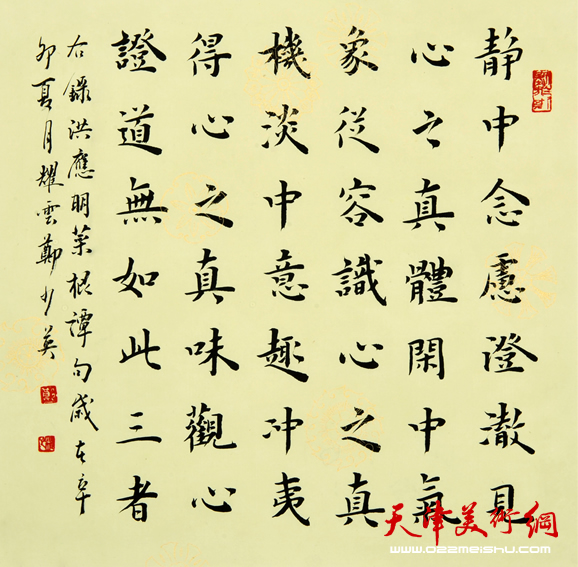 静中念慮澄澈見
心之真體閑中氣
象從容識心之真
機淡中意趣冲夷
得心之真味觀心
證道無如此三者
右錄洪應明菜根譚句歲在辛
卯夏月耀雲鄭少英
天津美術網
www.022meishu.com